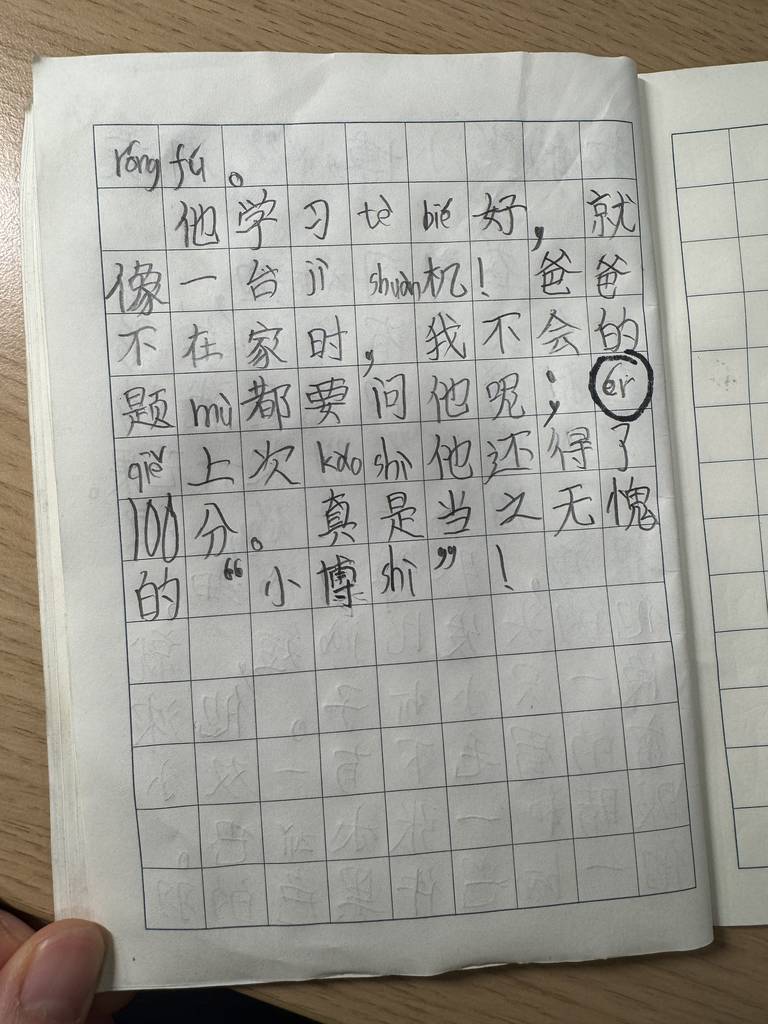 róng fú。
他学习tè bié好，就
像一台jì shuàn机！爸爸
不在家时，我不会的
题mù都要问他呢；ér
qiě上次kǎo shì他还得了
100分。真是当之无愧
的“小博shì”！